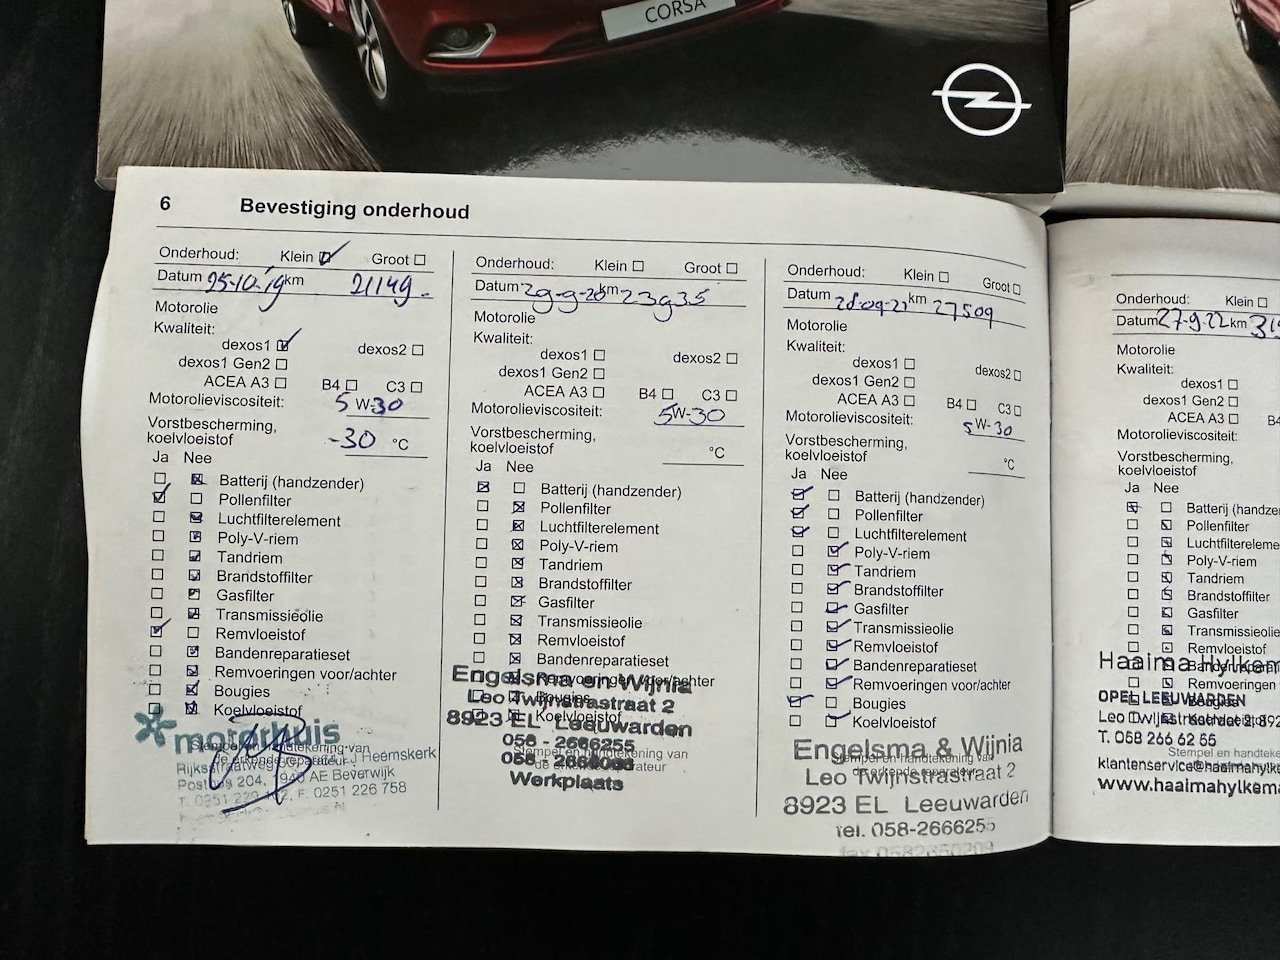 CORSA
6 Bevestiging onderhoud
Onderhoud: Klein Groot
Datum 25-10-19 km 21149.
Motorolie
Kwaliteit:
dexos1 dexos2
dexos1 Gen2
ACEA A3 B4 C3
Motorolieviscositeit: 5W-30
Vorstbescherming,
koelvloeistof -30 °C
Ja Nee
Batterij (handzender)
Pollenfilter
Luchtfilterelement
Poly-V-riem
Tandriem
Brandstoffilter
Gasfilter
Transmissieolie
Remvloeistof
Bandenreparatieset
Remvoeringen voor/achter
Bougies
Koelvloeistof
motorhuis
Stempel en handtekening van
de erkende reparateur
Heemskerk
AE Beverwijk
F. 0251 226 758
Onderhoud: Klein Groot
Datum 29-9-20 km 23935
Motorolie
Kwaliteit:
dexos1 dexos2
dexos1 Gen2
ACEA A3 B4 C3
Motorolieviscositeit: 5W-30
Vorstbescherming,
koelvloeistof °C
Ja Nee
Batterij (handzender)
Pollenfilter
Luchtfilterelement
Poly-V-riem
Tandriem
Brandstoffilter
Gasfilter
Transmissieolie
Remvloeistof
Bandenreparatieset
Remvoeringen voor/achter
Bougies
Koelvloeistof
Engelsma en Wijnia
Leo Twijnstrastraat 2
8923 EL Leeuwarden
058 - 2666255
Stempel en handtekening van
de erkende reparateur
Werkplaats
Onderhoud: Klein Groot
Datum 28-09-21 km 27509
Motorolie
Kwaliteit:
dexos1 dexos2
dexos1 Gen2
ACEA A3 B4 C3
Motorolieviscositeit: 5W-30
Vorstbescherming,
koelvloeistof °C
Ja Nee
Batterij (handzender)
Pollenfilter
Luchtfilterelement
Poly-V-riem
Tandriem
Brandstoffilter
Gasfilter
Transmissieolie
Remvloeistof
Bandenreparatieset
Remvoeringen voor/achter
Bougies
Koelvloeistof
Engelsma & Wijnia
Stempel en handtekening van
de erkende reparateur
Leo Twijnstrastraat 2
8923 EL Leeuwarden
tel. 058-2666255
Onderhoud: Klein
Datum 27-9-22 km
Motorolie
Kwaliteit:
dexos1
dexos1 Gen2
ACEA A3
Motorolieviscositeit:
Vorstbescherming,
koelvloeistof
Ja Nee
Batterij (handze
Pollenfilter
Luchtfiltereleme
Poly-V-riem
Tandriem
Brandstoffilter
Gasfilter
Transmissieolie
Remvloeistof
Remvoeringen
Haaima Hylkem
OPEL LEEUWARDEN
T. 058 266 62 55
Stempel en handteke
klantenservice@haaimahylke
www.haaimahylkema